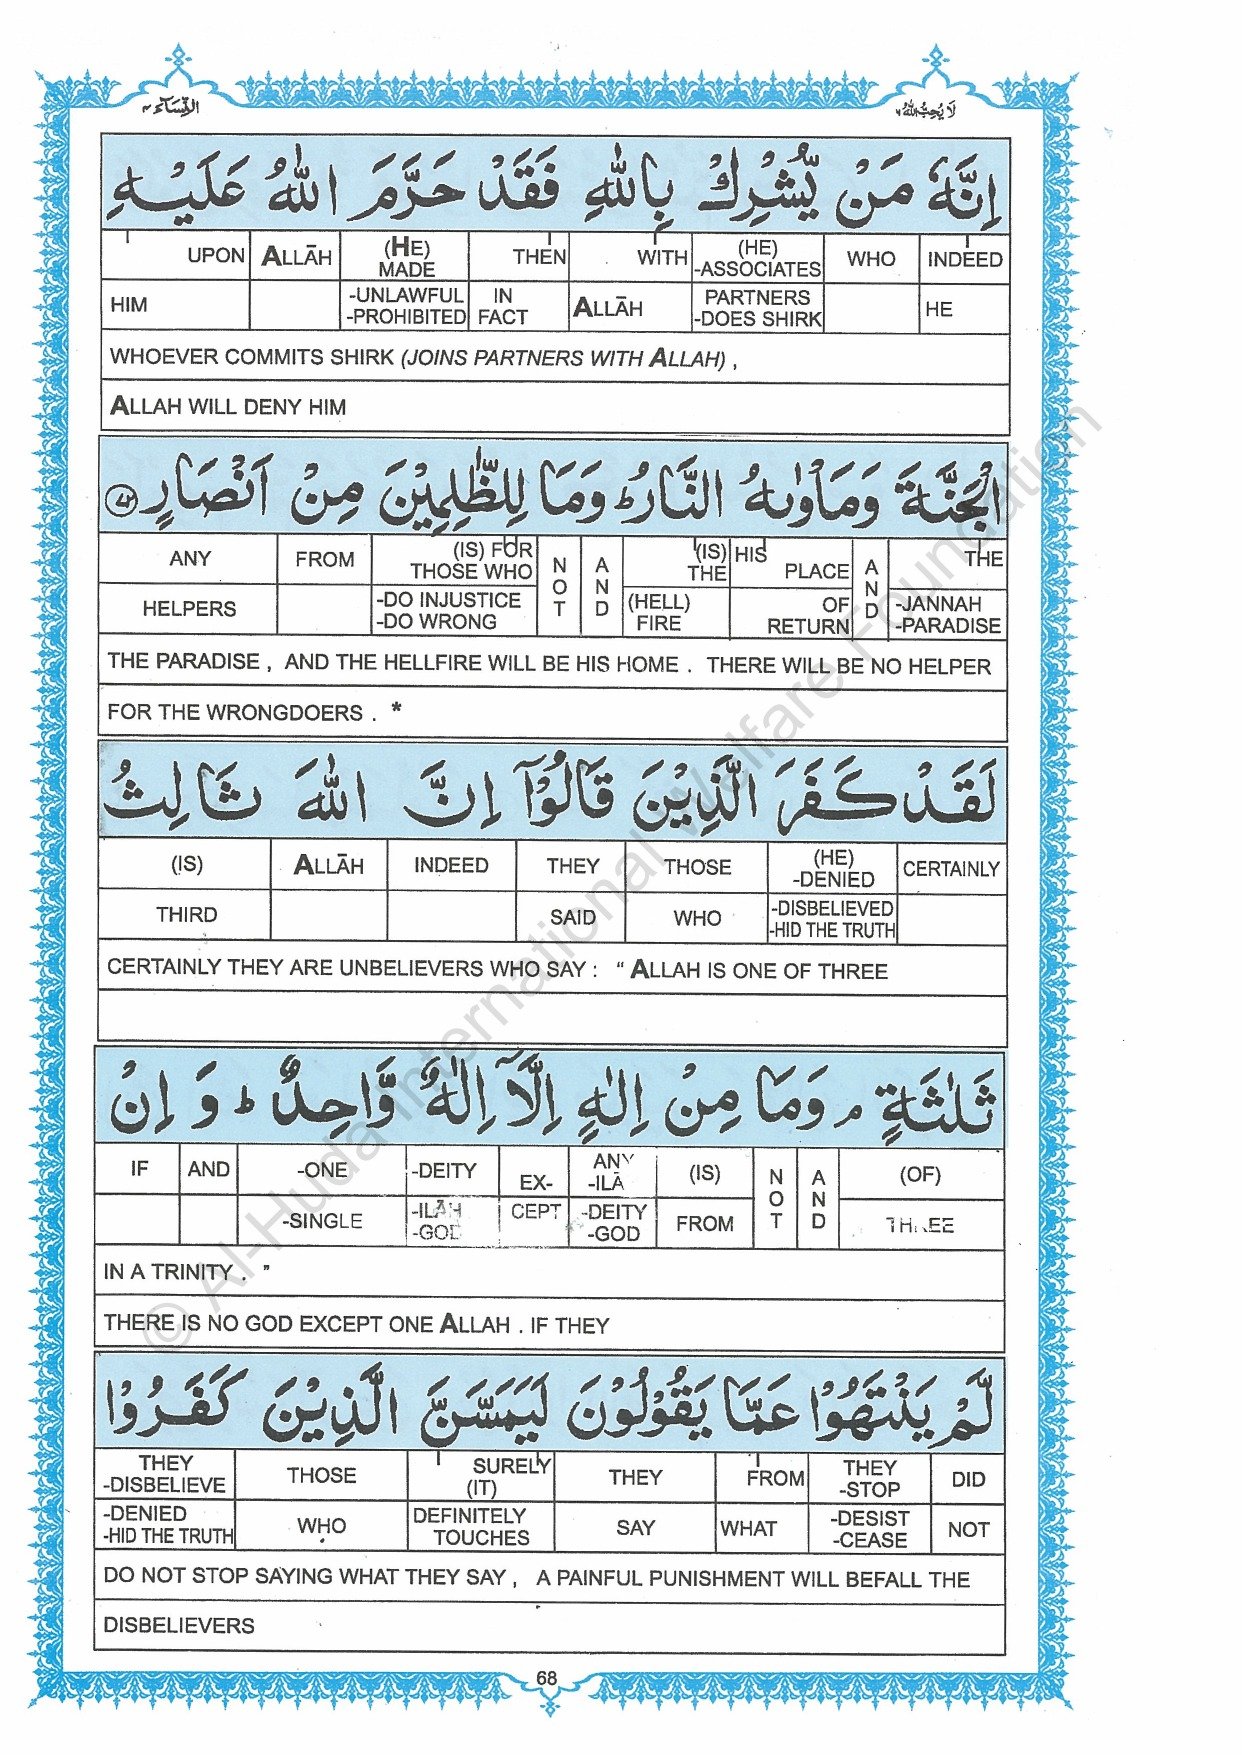 النِّسَآء ٤
لَا يُحِبُّ اللهُ ٦
اِنَّهٗ مَنْ يُّشْرِكْ بِاللّٰهِ فَقَدْ حَرَّمَ اللّٰهُ عَلَيْهِ
UPON ALLĀH (HE) MADE THEN WITH (HE) -ASSOCIATES WHO INDEED
HIM -UNLAWFUL -PROHIBITED IN FACT ALLĀH PARTNERS -DOES SHIRK HE
WHOEVER COMMITS SHIRK (JOINS PARTNERS WITH ALLAH) ,
ALLAH WILL DENY HIM
الْجَنَّةَ وَمَاْوٰىهُ النَّارُ ط وَمَا لِلظّٰلِمِيْنَ مِنْ اَنْصَارٍ ﴿٧٢﴾
ANY FROM (IS) FOR THOSE WHO NOT AND (IS) THE HIS PLACE AND THE
HELPERS -DO INJUSTICE -DO WRONG (HELL) FIRE OF RETURN -JANNAH -PARADISE
THE PARADISE , AND THE HELLFIRE WILL BE HIS HOME . THERE WILL BE NO HELPER
FOR THE WRONGDOERS . *
لَقَدْ كَفَرَ الَّذِيْنَ قَالُوْٓا اِنَّ اللّٰهَ ثَالِثُ
(IS) ALLĀH INDEED THEY THOSE (HE) -DENIED CERTAINLY
THIRD SAID WHO -DISBELIEVED -HID THE TRUTH
CERTAINLY THEY ARE UNBELIEVERS WHO SAY : " ALLAH IS ONE OF THREE
ثَلٰثَةٍ م وَمَا مِنْ اِلٰهٍ اِلَّآ اِلٰهٌ وَّاحِدٌ ط وَ اِنْ
IF AND -ONE -DEITY EX- ANY -ILĀ (IS) NOT AND (OF)
-SINGLE -ILĀH -GOD CEPT -DEITY -GOD FROM THREE
IN A TRINITY . "
THERE IS NO GOD EXCEPT ONE ALLAH . IF THEY
لَّمْ يَنْتَهُوْا عَمَّا يَقُوْلُوْنَ لَيَمَسَّنَّ الَّذِيْنَ كَفَرُوْا
THEY -DISBELIEVE THOSE SURELY (IT) THEY FROM THEY -STOP DID
-DENIED -HID THE TRUTH WHO DEFINITELY TOUCHES SAY WHAT -DESIST -CEASE NOT
DO NOT STOP SAYING WHAT THEY SAY , A PAINFUL PUNISHMENT WILL BEFALL THE
DISBELIEVERS
68
© Al-Huda International Welfare Foundation